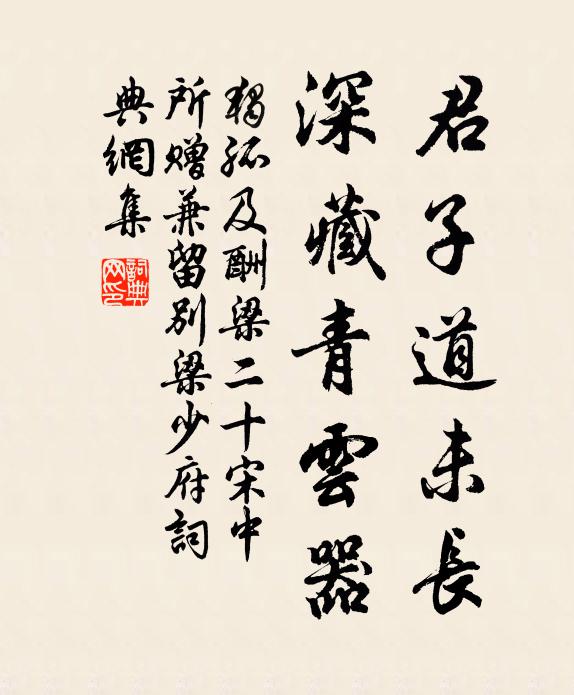 君子道未長
深藏青雲器
獨孤及酬梁二十宋中
所贈兼留別梁少府詞
典網集
詞典
网印